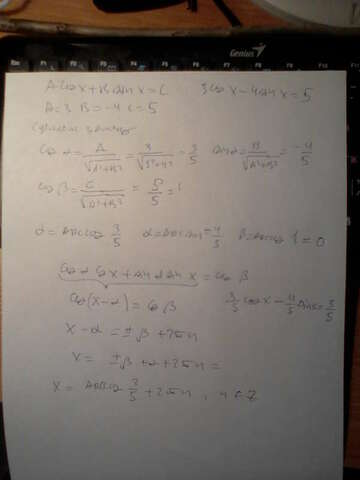 Genius
A cos x + B sin x = C 3 cos x - 4 sin x = 5
A = 3 B = -4 C = 5
cos α = A/√(A²+B²) = 3/√(3²+4²) = 3/5 sin α = B/√(A²+B²) = -4/5
cos β = C/√(A²+B²) = 5/5 = 1
α = arccos 3/5 α = arcsin -4/5 β = arccos 1 = 0
cos α cos x + sin α sin x = cos β
cos(x-α) = cos β 3/5 cos x - 4/5 sin x = 5/5
x - α = ±β + 2πn
x = ±β + α + 2πn =
x = arccos 3/5 + 2πn, n ∈ Z